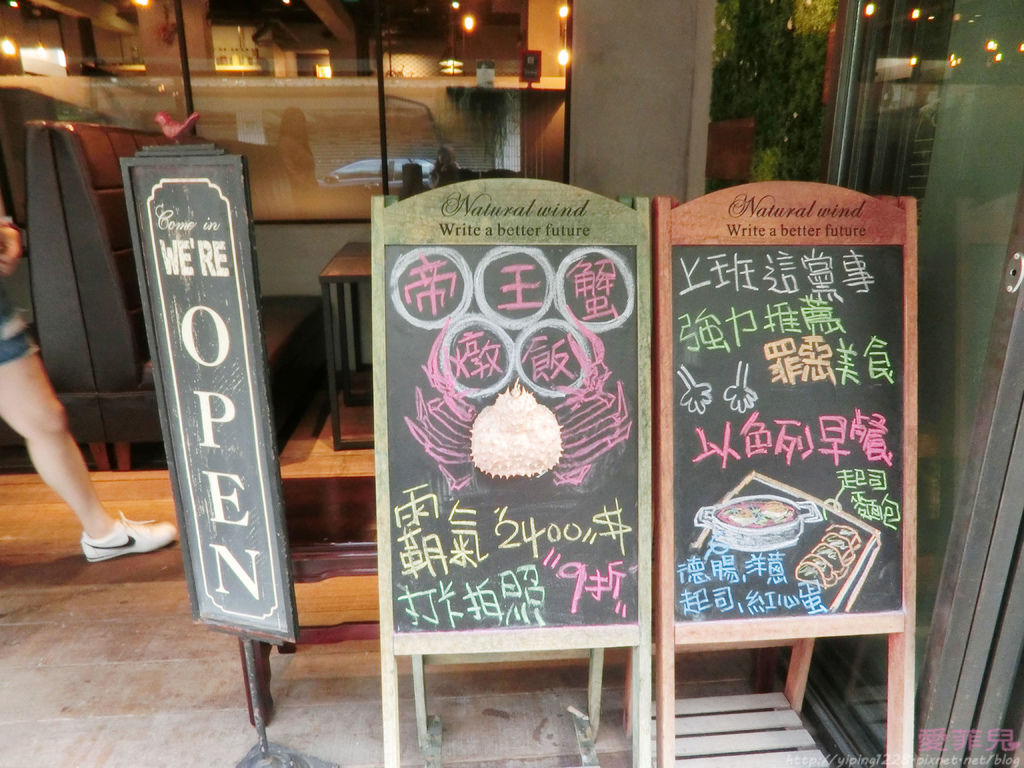 Come in
WE'RE
OPEN
Natural wind
Write a better future
帝王蟹
燉飯
霸氣 "2400" $
打卡拍照 "9折"
Natural wind
Write a better future
上班這黨事
強力推薦
罪惡美食
以色列早餐
起司
麵包
德腸,洋蔥
起司,紅心蛋
愛菲兒
http://yiping1228.pixnet.net/blog